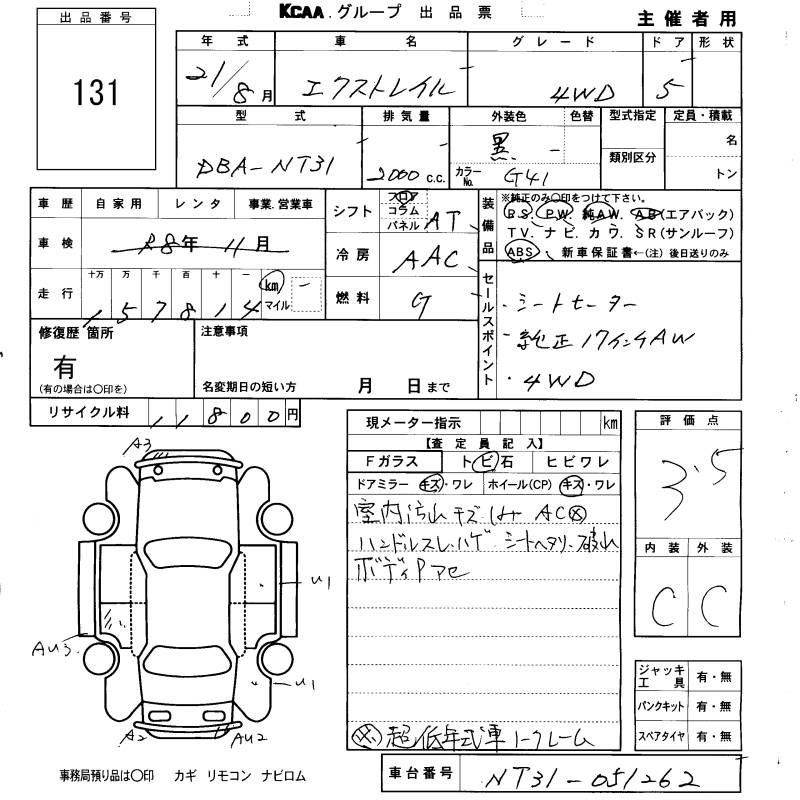 KCAA.グループ 出品票
主催者用
出品番号
131
年式 車名 グレード ドア 形状
21/8月 エクストレイル 4WD 5
型式 排気量 外装色 色替 型式指定 定員・積載
DBA-NT31 2000 c.c. 黒 - 名
カラーNo. G41 類別区分 トン
車歴 自家用 レンタ 事業.営業車
車検 R8年 11月
走行 十万 万 千 百 十 一
157814 km マイル -
シフト フロア コラム パネル AT
冷房 AAC
燃料 G
装備品
※純正のみ○印をつけて下さい。
P.S. P.W. 純AW. AB(エアバック)
TV. ナビ. カワ. SR(サンルーフ)
ABS 新車保証書←(注)後日送りのみ
セールスポイント
・シートヒーター
・純正17インチAW
・4WD
修復歴 箇所
有
(有の場合は○印を)
注意事項
名変期日の短い方 月 日まで
リサイクル料 11800円
現メーター指示 km
【査定員記入】
Fガラス トビ石 ヒビワレ
ドアミラー キズ・ワレ ホイール(CP) キズ・ワレ
室内汚れ キズ AC
ハンドルスレ.ハゲ シートヘタリ.破れ
ボディアセ
超低年式車 ノークレーム
評価点
3.5
内装 外装
C C
A3
U1
AU3.
U1
A2 AU2
ジャッキ工具 有・無
パンクキット 有・無
スペアタイヤ 有・無
事務局預り品は○印 カギ リモコン ナビロム
車台番号 NT31-051262